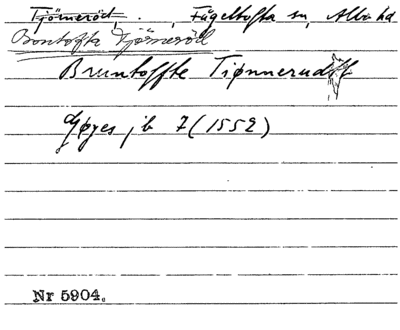 Tjörneröd, Fågeltofta sn, Albo hd
Bontofta Tjörneröd
Bruntoffte Tiønnerud
Gøyes jb 7 (1552)
Nr 5904.